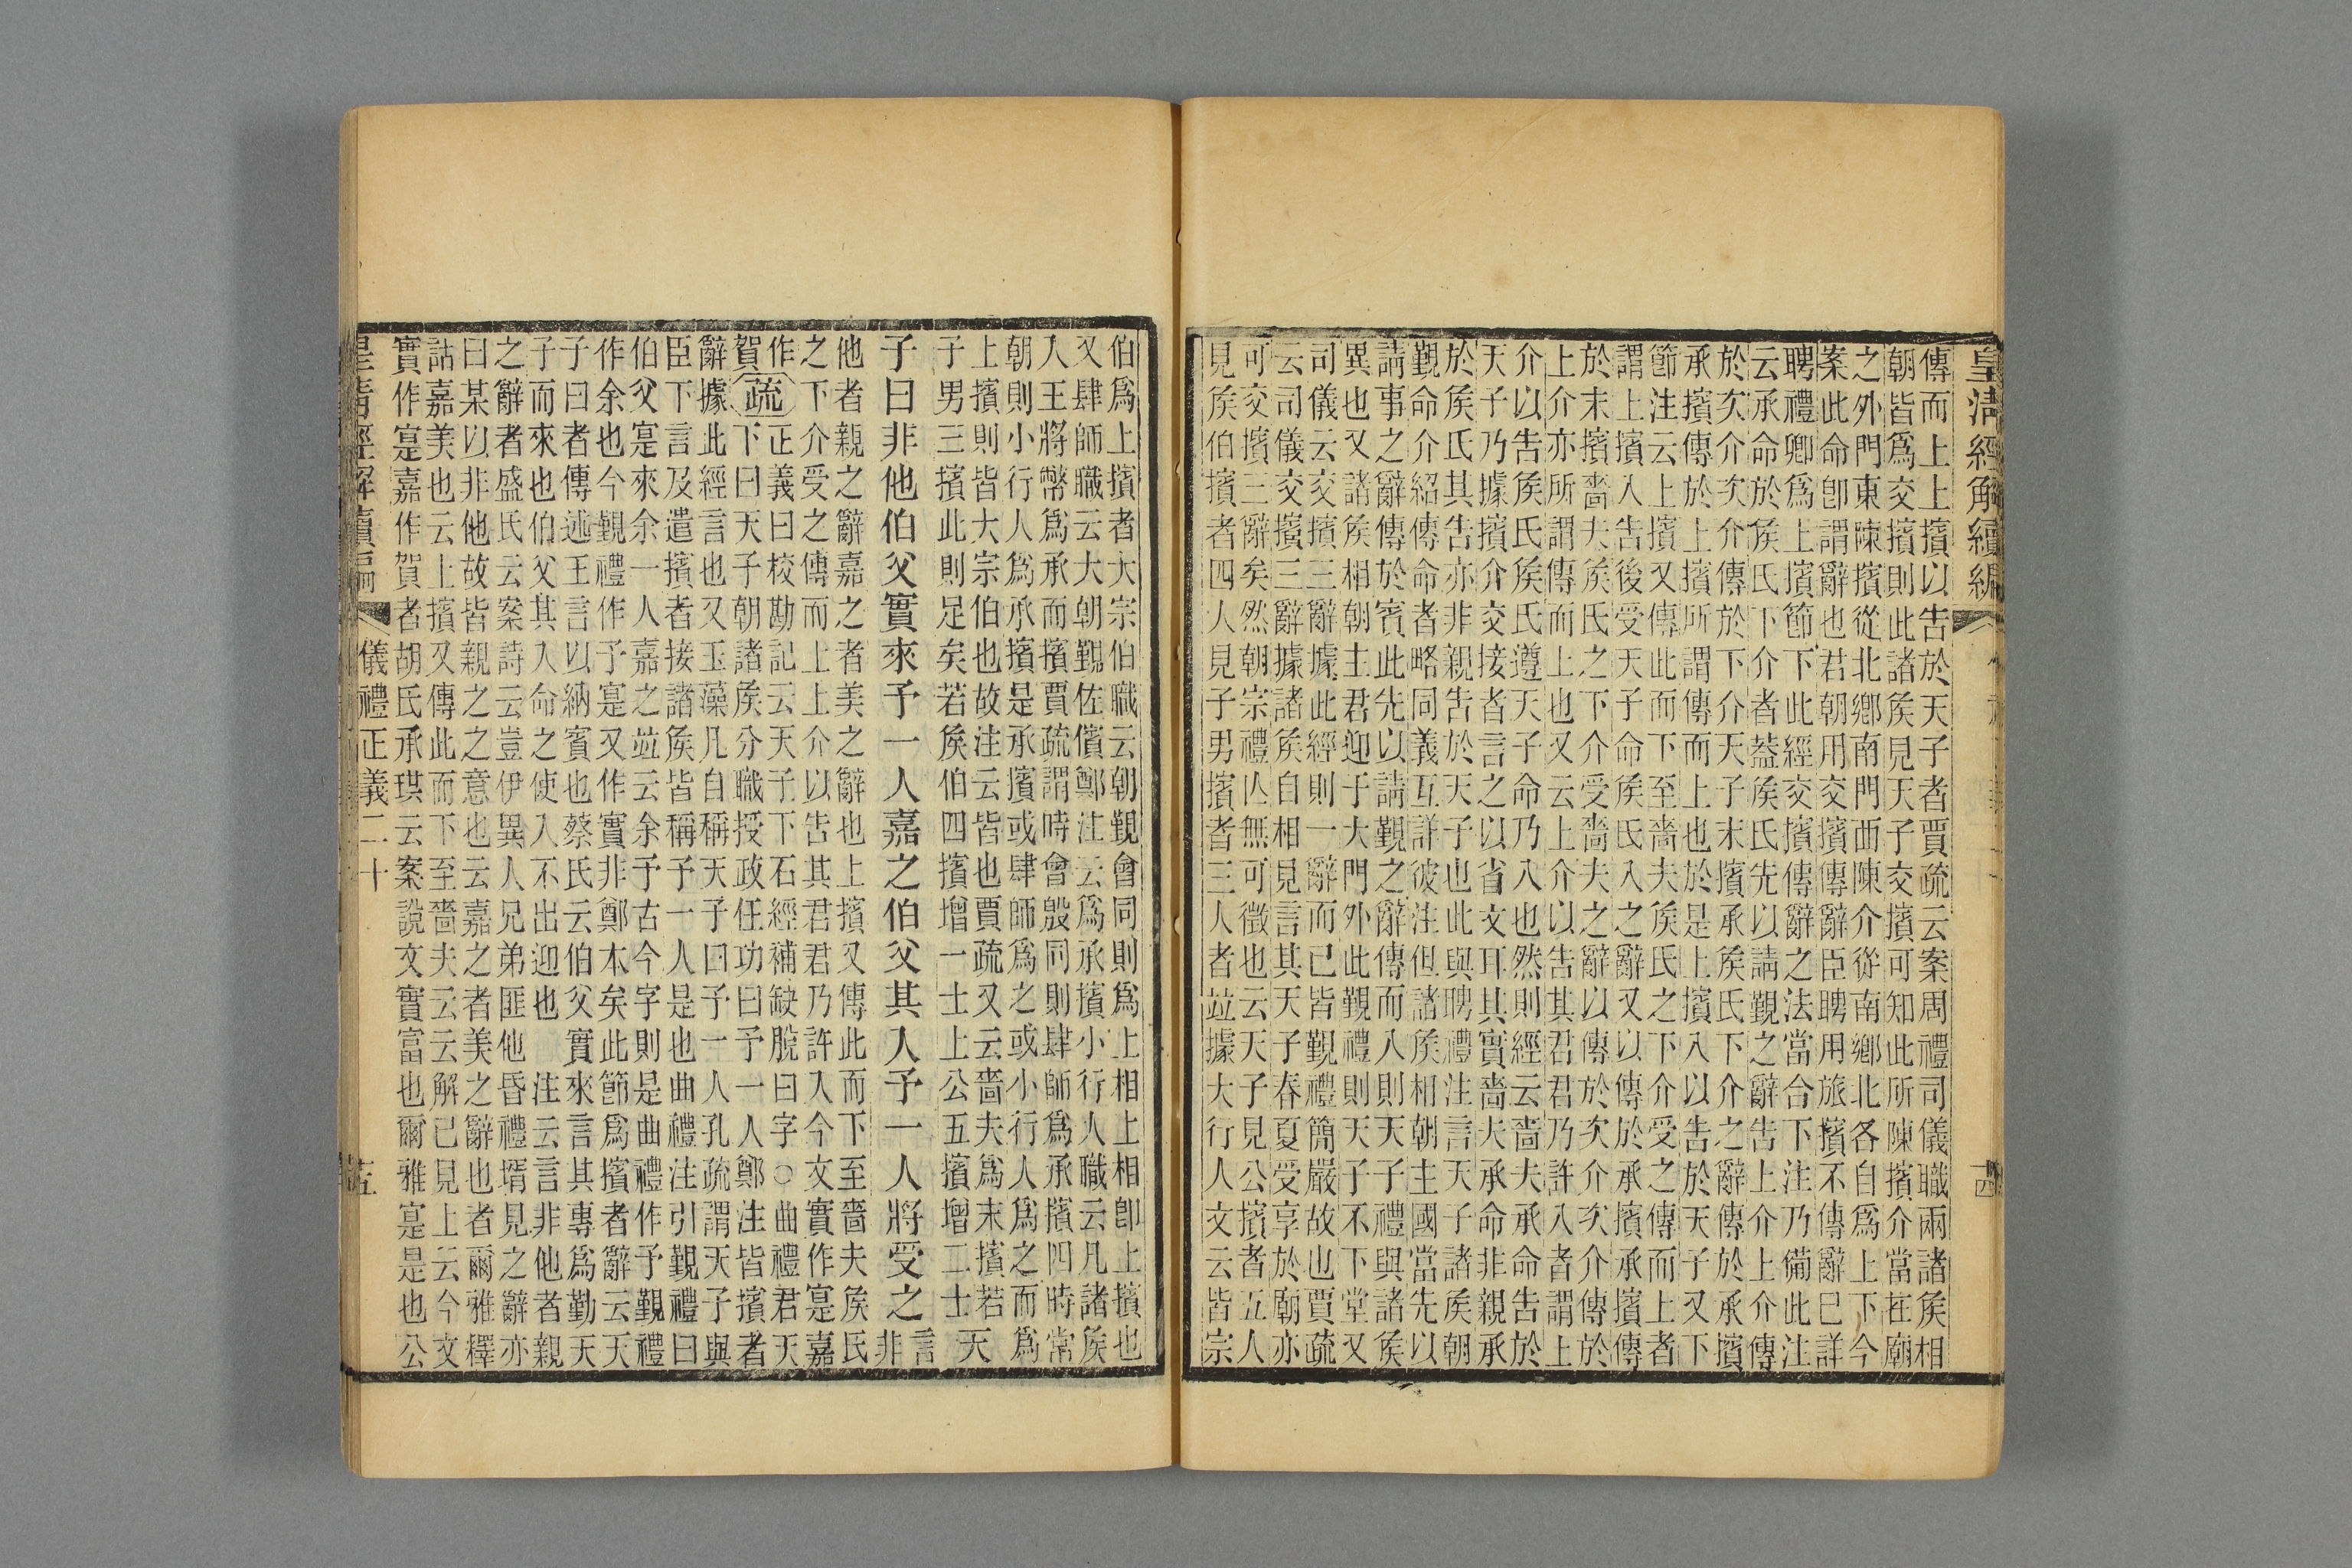 皇淸經解續編
傳而上上擯以告於天子者賈疏云案周禮司儀職兩諸矦相
朝皆爲交擯則此諸矦見天子交擯可知此所陳擯介當在廟
之外門東陳擯從北鄉南門西陳介從南鄉北各自爲上下今
案此命卽謂辭也君朝用交擯傳辭臣聘用旅擯不傳辭已詳
聘禮卿爲上擯節下此經交擯傳辭之法當合下注乃備此注
云承命於矦氏下介者葢矦氏先以請覲之辭告上介上介傳
於次介次介傳於下介天子末擯承矦氏下介之辭傳於承擯
承擯傳於上擯所謂傳而上也於是上擯入以告於天子又下
節注云上擯又傳此而下至嗇夫矦氏之下介受之傳而上者
謂上擯入告後受天子命矦氏入之辭又以傳於承擯承擯傳
於末擯嗇夫矦氏之下介受嗇夫之辭以傳於次介次介傳於
上介亦所謂傳而上也又云上介以告其君君乃許入者謂上
介以告矦氏矦氏遵天子命乃入也然則經云嗇夫承命告於
天子乃據擯介交接者言之以省文耳其實嗇夫承命非親承
於矦氏其告亦非親告於天子也此與聘禮注言天子諸矦朝
覲命介紹傳命者略同義互詳彼注但諸矦相朝主國當先以
請事之辭傳於賓此先以請覲之辭傳而入則天子禮與諸矦
異也又諸矦相朝主君迎于大門外此覲禮則天子不下堂又
司儀云交擯三辭據此經則一辭而已皆覲禮簡嚴故也賈疏
云司儀交擯三辭據諸矦自相見言其天子春夏受享於廟亦
可交擯三辭矣然朝宗禮亾無可徵也云天子見公擯者五人
見矦伯擯者四人見子男擯者三人者竝據大行人文云皆宗
十四
伯爲上擯者大宗伯職云朝覲會同則爲上相上相卽上擯也
又肆師職云大朝覲佐儐鄭注云爲承擯小行人職云凡諸矦
人王將幣爲承而擯賈疏謂時會殷同則肆師爲承擯四時常
朝則小行人爲承擯是承擯或肆師爲之或小行人爲之而爲
上擯則皆大宗伯也故注云皆也賈疏又云嗇夫爲末擯若天
子男三擯此則足矣若矦伯四擯增一士上公五擯增二士
子曰非他伯父實來予一人嘉之伯父其入予一人將受之言非
他者親之辭嘉之者美之辭也上擯又傳此而下至嗇夫矦氏
之下介受之傳而上上介以告其君君乃許入今文實作寔嘉
作正義曰校勘記云天子下石經補缺脫曰字○曲禮君天
賀疏下曰天子朝諸矦分職授政任功曰予一人鄭注皆擯者
辭據此經言也又玉藻凡自稱天子曰予一人孔疏謂天子與
臣下言及遣擯者接諸矦皆稱予一人是也曲禮注引覲禮曰
伯父寔來余一人嘉之竝云余予古今字則是曲禮作予覲禮
作余也今覲禮作予寔又作實非鄭本矣此節爲擯者辭云天
子曰者傳述王言以納賓也蔡氏云伯父實來言其專爲勤天
子而來也伯父其入命之使入不出迎也 注云言非他者親
之辭者盛氏云案詩云豈伊異人兄弟匪他昏禮壻見之辭亦
曰某以非他故皆親之之意也云嘉之者美之辭也者爾雅釋
詁嘉美也云上擯又傳此而下至嗇夫云云解已見上云今文
實作寔嘉作賀者胡氏承珙云案說文實富也爾雅寔是也公
皇淸經解續編 儀禮正義二十
十五